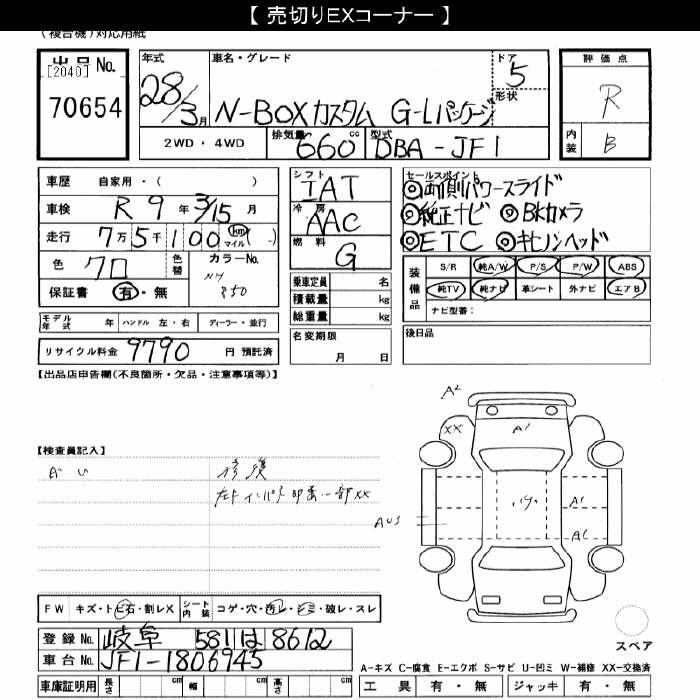 【 売切りEXコーナー 】
(複合機)対応用紙
出品 No. [2040] 70654
年式 28/3月
車名・グレード N-BOXカスタム G-Lパッケージ
ドア 5
形状
評価点 R
内装 B
2WD・4WD
排気量 660 cc
型式 DBA-JF1
車歴 自家用・( )
車検 R 9 年 3/15 月
走行 7万5千100 km マイル ( )
色 クロ 色替
カラーNo.
保証書 有・無
シフト IAT
冷房 AAC
燃料 G
セールスポイント
◎両側パワースライド
◎純正ナビ ◎Bkカメラ
◎ETC ◎キセノンヘッド
装備品 S/R 純A/W P/S P/W ABS
純TV 純ナビ 革シート 外ナビ エアB
ナビ型番:
乗車定員 名
積載量 kg
総重量 kg
モデル年式 年 ハンドル 左・右 ディーラー・並行
名変期限 月 日
後日品
リサイクル料金 9790 円 預託済
【出品店申告欄(不良箇所・欠品・注意事項等)】
【検査員記入】
A2
XX A1
A1
A1
FW キズ・トビ石・割レX シート内装 コゲ・穴・汚レ・シミ・破レ・スレ
登録 No. 岐阜 581 は 8612
車台 No. JF1-1806945
スペア
A-キズ C-腐食 E-エクボ S-サビ U-凹ミ W-補修 XX-交換済
車庫証明用 長さ cm 幅 cm 高さ cm
工具 有・無 ジャッキ 有・無